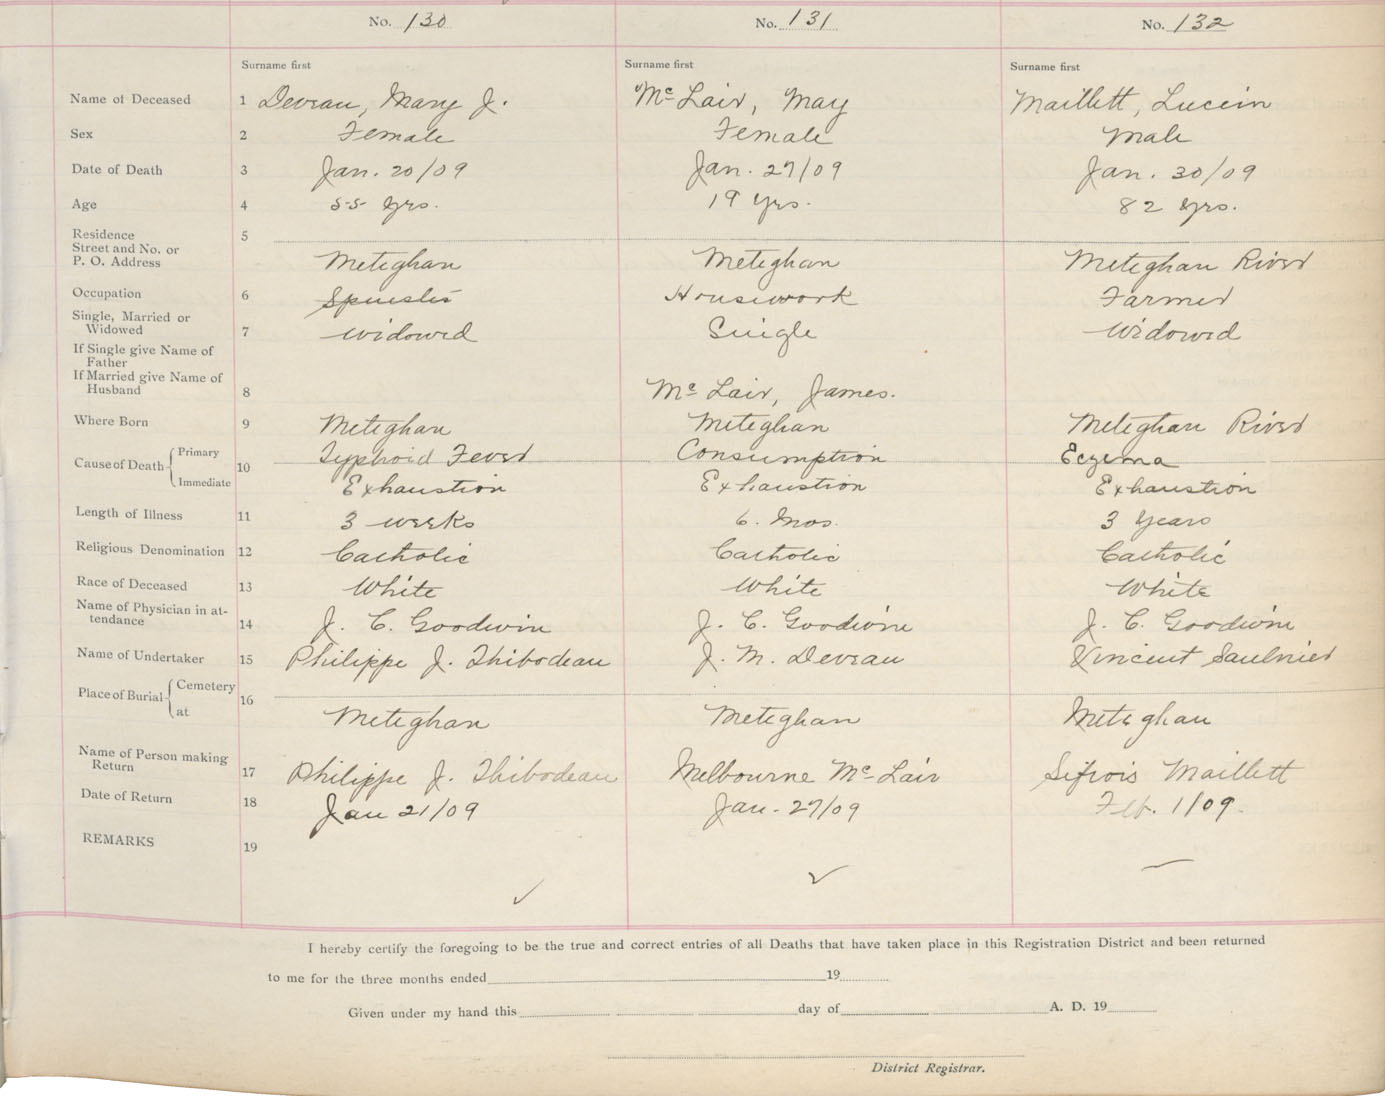 No. 130 No. 131 No. 132
Surname first Surname first Surname first
Name of Deceased 1 Deveau, Mary J. McLair, May Maillett, Lucein
Sex 2 Female Female Male
Date of Death 3 Jan. 20/09 Jan. 27/09 Jan. 30/09
Age 4 55 yrs. 19 yrs. 82 yrs.
Residence 5
Street and No. or
P. O. Address Meteghan Meteghan Meteghan River
Occupation 6 Spinster Housework Farmer
Single, Married or
Widowed 7 Widowed Single Widowed
If Single give Name of
Father
If Married give Name of
Husband 8 McLair, James.
Where Born 9 Meteghan Meteghan Meteghan River
Cause of Death 10 Primary Typhoid Fever Consumption Eczema
Immediate Exhaustion Exhaustion Exhaustion
Length of Illness 11 3 weeks 6. Mos. 3 Years
Religious Denomination 12 Catholic Catholic Catholic
Race of Deceased 13 White White White
Name of Physician in at-
tendance 14 J. C. Goodwin J. C. Goodwin J. C. Goodwin
Name of Undertaker 15 Philippe J. Thibodeau J. M. Deveau Vincent Saulnier
Place of Burial 16 Cemetery
at Meteghan Meteghan Meteghan
Name of Person making
Return 17 Philippe J. Thibodeau Melbourne McLair Sifrois Maillett
Date of Return 18 Jan 21/09 Jan. 27/09 Feb. 1/09.
REMARKS 19
I hereby certify the foregoing to be the true and correct entries of all Deaths that have taken place in this Registration District and been returned
to me for the three months ended 19
Given under my hand this day of A. D. 19
District Registrar.